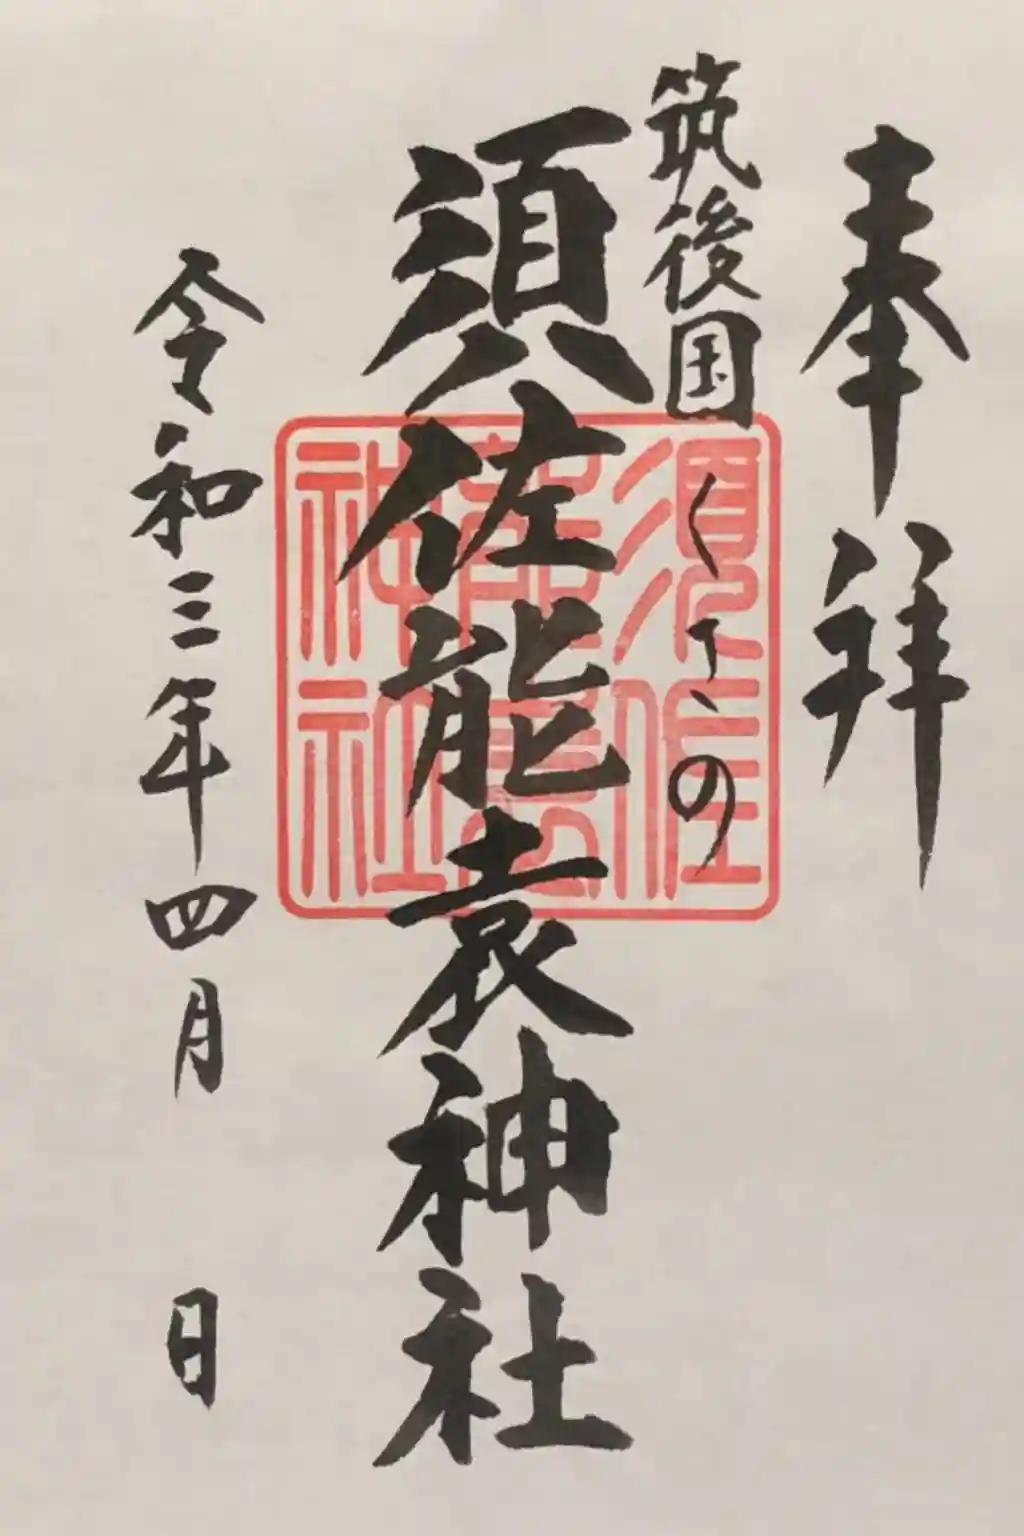 奉拝
筑後国くさの
須佐能袁神社
令和三年四月　日
須佐
能袁
神社